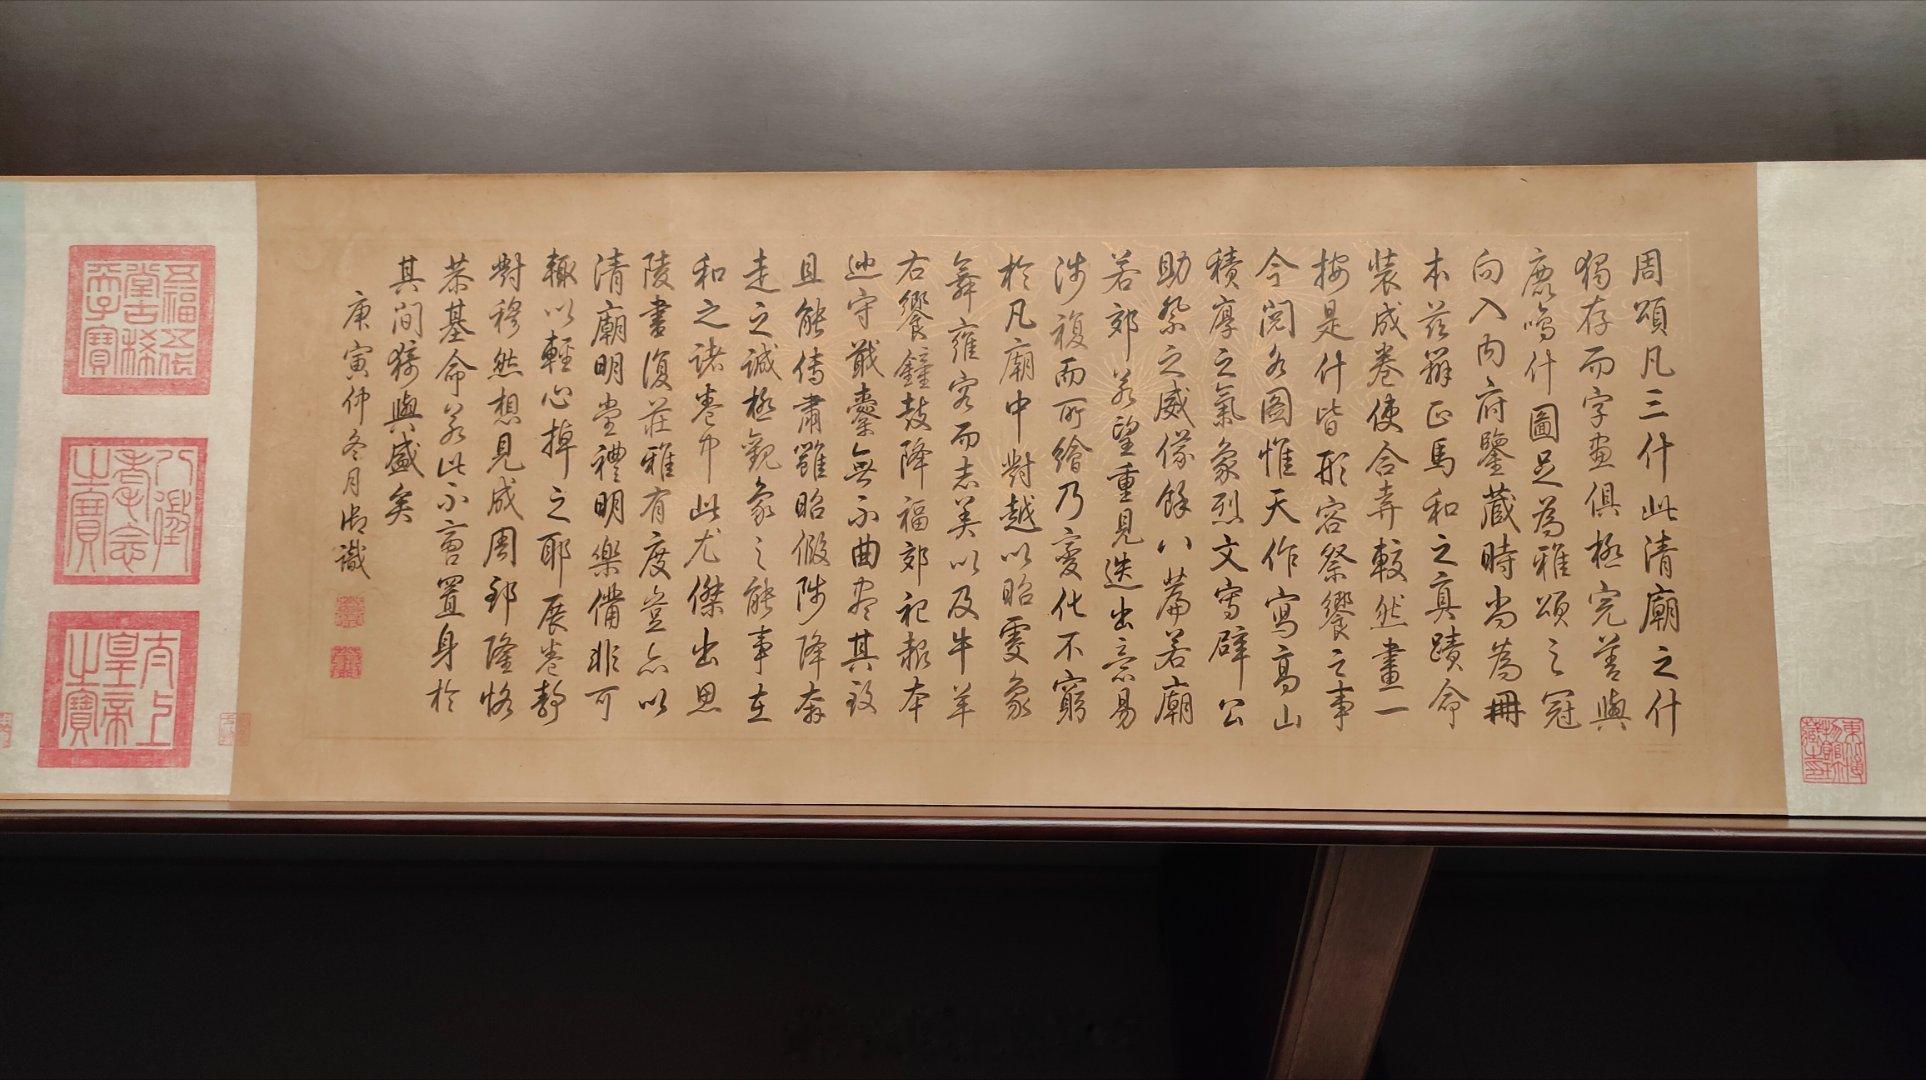 周頌凡三什此清廟之什
獨存而字畫俱極完善與
鹿鳴什圖足為雅頌之冠
向入内府鑒藏時尚為冊
本茲辨正馬和之真蹟命
裝成卷使合弆較然畫一
按是什皆形容祭饗之事
今閱各圖惟天作寫高山
積厚之氣象烈文寫辟公
助祭之威儀餘八篇若廟
若郊若望重見迭出意易
涉複而所繪乃變化不窮
於凡廟中對越以昭雯象
舞雍容而志美以及牛羊
右饗鐘鼓降福郊祀報本
廵守戢櫜無不曲盡其致
且能傳肅雝昭假陟降奔
走之誠極觀象之能事在
和之諸卷中此尤傑出思
陵書復莊雅有度豈亦以
清廟明堂禮明樂備非可
輒以輕心掉之耶展卷靜
對穆然想見成周郅隆恪
恭基命若此不啻置身於
其間猗與盛矣
庚寅仲冬月御識
五福五代堂古稀天子寶
八徵耄念之寶
太上皇帝之寶
東北博物館珍藏之印